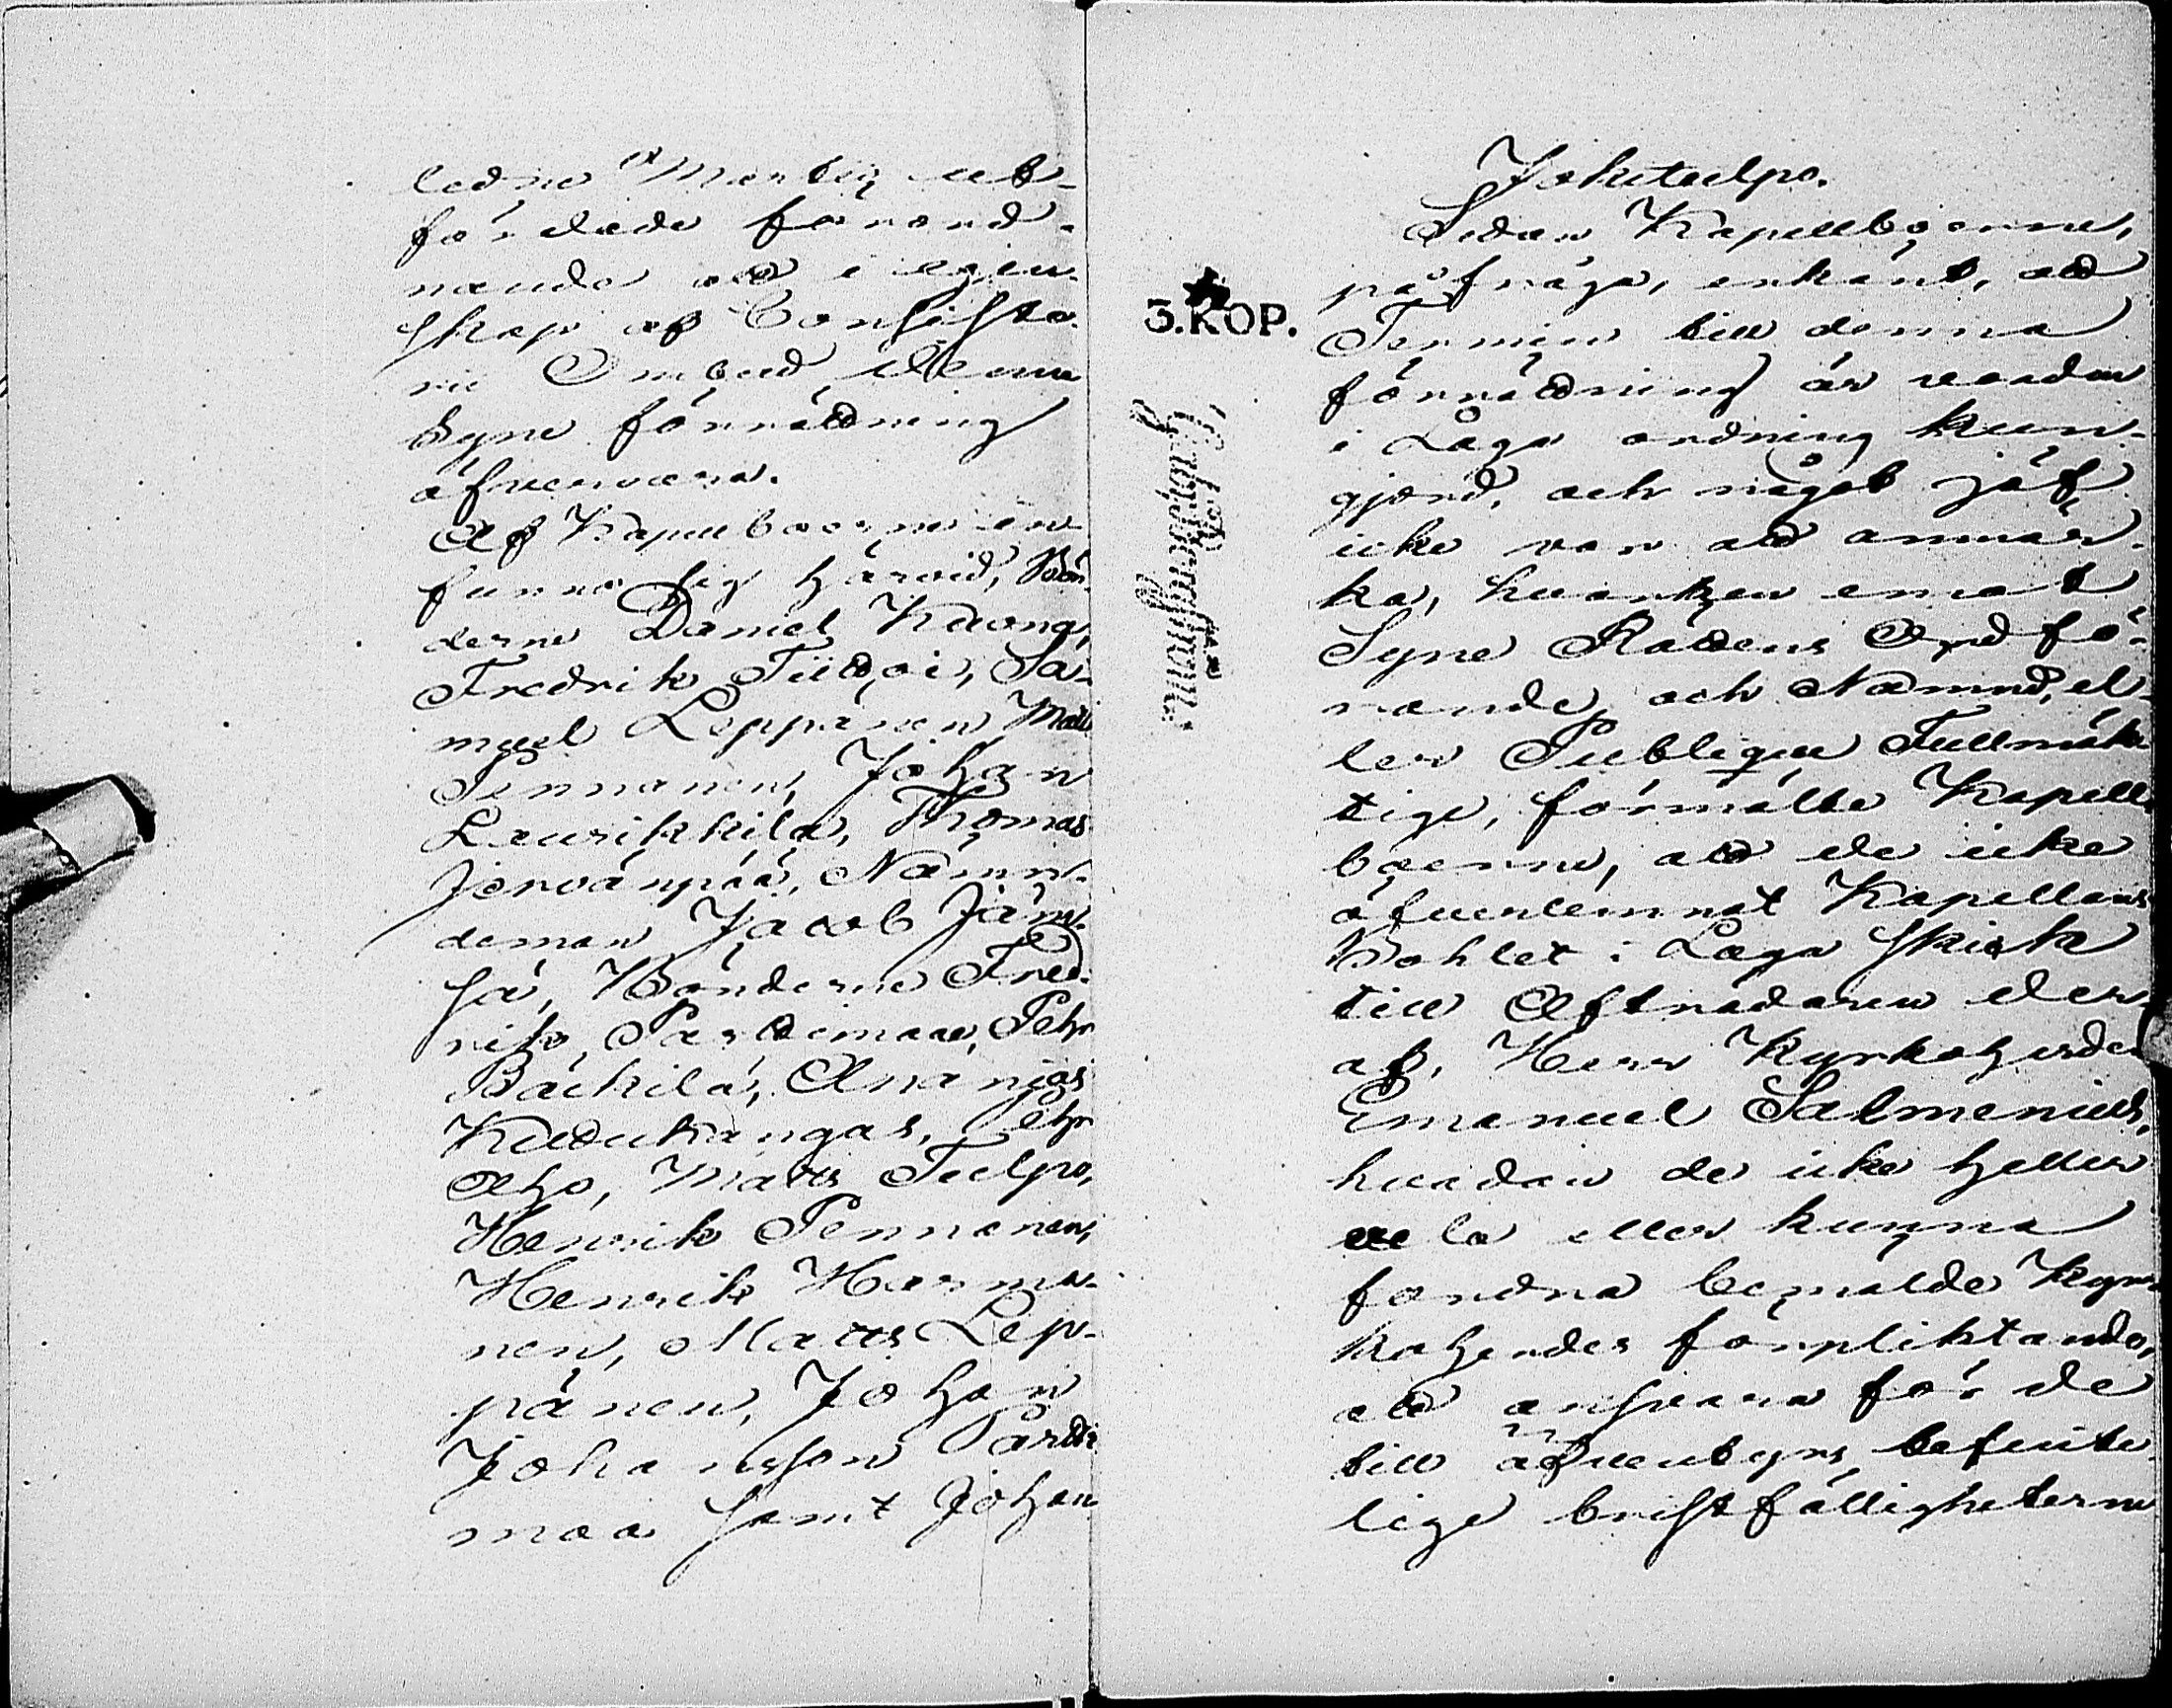 ledne Martii ut-
färdade förord-
nande att i egen-
skap af Consisto-
rii Ombud, denne
Syne förrättning
öfvervara.
Af Kapellboerne in-
funno sig härvid, Bön-
derne Daniel Kaonga,
Fredrik Tiittoi, Sa-
muel Leppänen, Matts
Pennanen, Johan
Laurikkila, Thomas
Jervänpää, Nämn-
deman Jacob Jäm-
sä, Bönderne Fred-
rik Parttimaa, Pehr
Bäckilä, Ananjas
Kuttukangas, Pehr
Aho, Matts Tulpo,
Henrik Pennanen,
Henrik Harma-
nen, Matts Lep-
pänen, Johan
Johansson Partti-
maa samt Johan
3. KOP.
Jokitulpo.
Sedan Kapellboerne,
på fråga, erkänt, att
Termin till denna
förrättning är vorden
i Laga ordning kun-
gjord, och något jäf
icke var att anmär-
ka, hvarken emot
Syne Rättens Ordfö-
rande och Nämnd, el-
ler Publique Fullmäk-
tige, förmälte Kapell-
boerne, att de icke
öfverlemnat Kapellans
Bohlet i Laga skick
till Aftradaren der-
af, Herr Kyrkoherden
Emanuel Salmenius,
hvadan de icke heller
vela eller kunna
fordra bemälde Kyr-
koherdes förpliktande,
att ansvara för de
till äfventyrs befinte-
lige bristfälligheterne